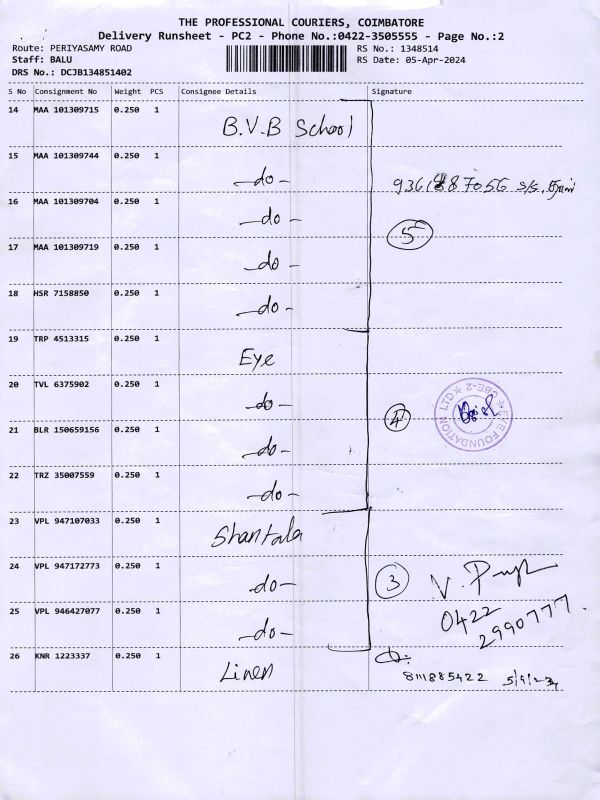 THE PROFESSIONAL COURIERS, COIMBATORE
Delivery Runsheet - PC2 - Phone No.:0422-3505555 - Page No.:2
Route: PERIYASAMY ROAD
Staff: BALU
DRS No.: DCJB134851402
RS No.: 1348514
RS Date: 05-Apr-2024
S No Consignment No Weight PCS Consignee Details Signature
14 MAA 101309715 0.250 1 B.V.B School
15 MAA 101309744 0.250 1 -do-
16 MAA 101309704 0.250 1 -do-
5
17 MAA 101309719 0.250 1 -do-
18 HSR 7158850 0.250 1 -do-
19 TRP 4513315 0.250 1 Eye
20 TVL 6375902 0.250 1 -do-
4
EYE FOUNDATION LTD CBE-2
21 BLR 150659156 0.250 1 -do-
22 TRZ 35007559 0.250 1 -do-
23 VPL 947107033 0.250 1 Shantala
24 VPL 947172773 0.250 1 -do- 3
0422
2990777
25 VPL 946427077 0.250 1 -do-
26 KNR 1223337 0.250 1 Linen